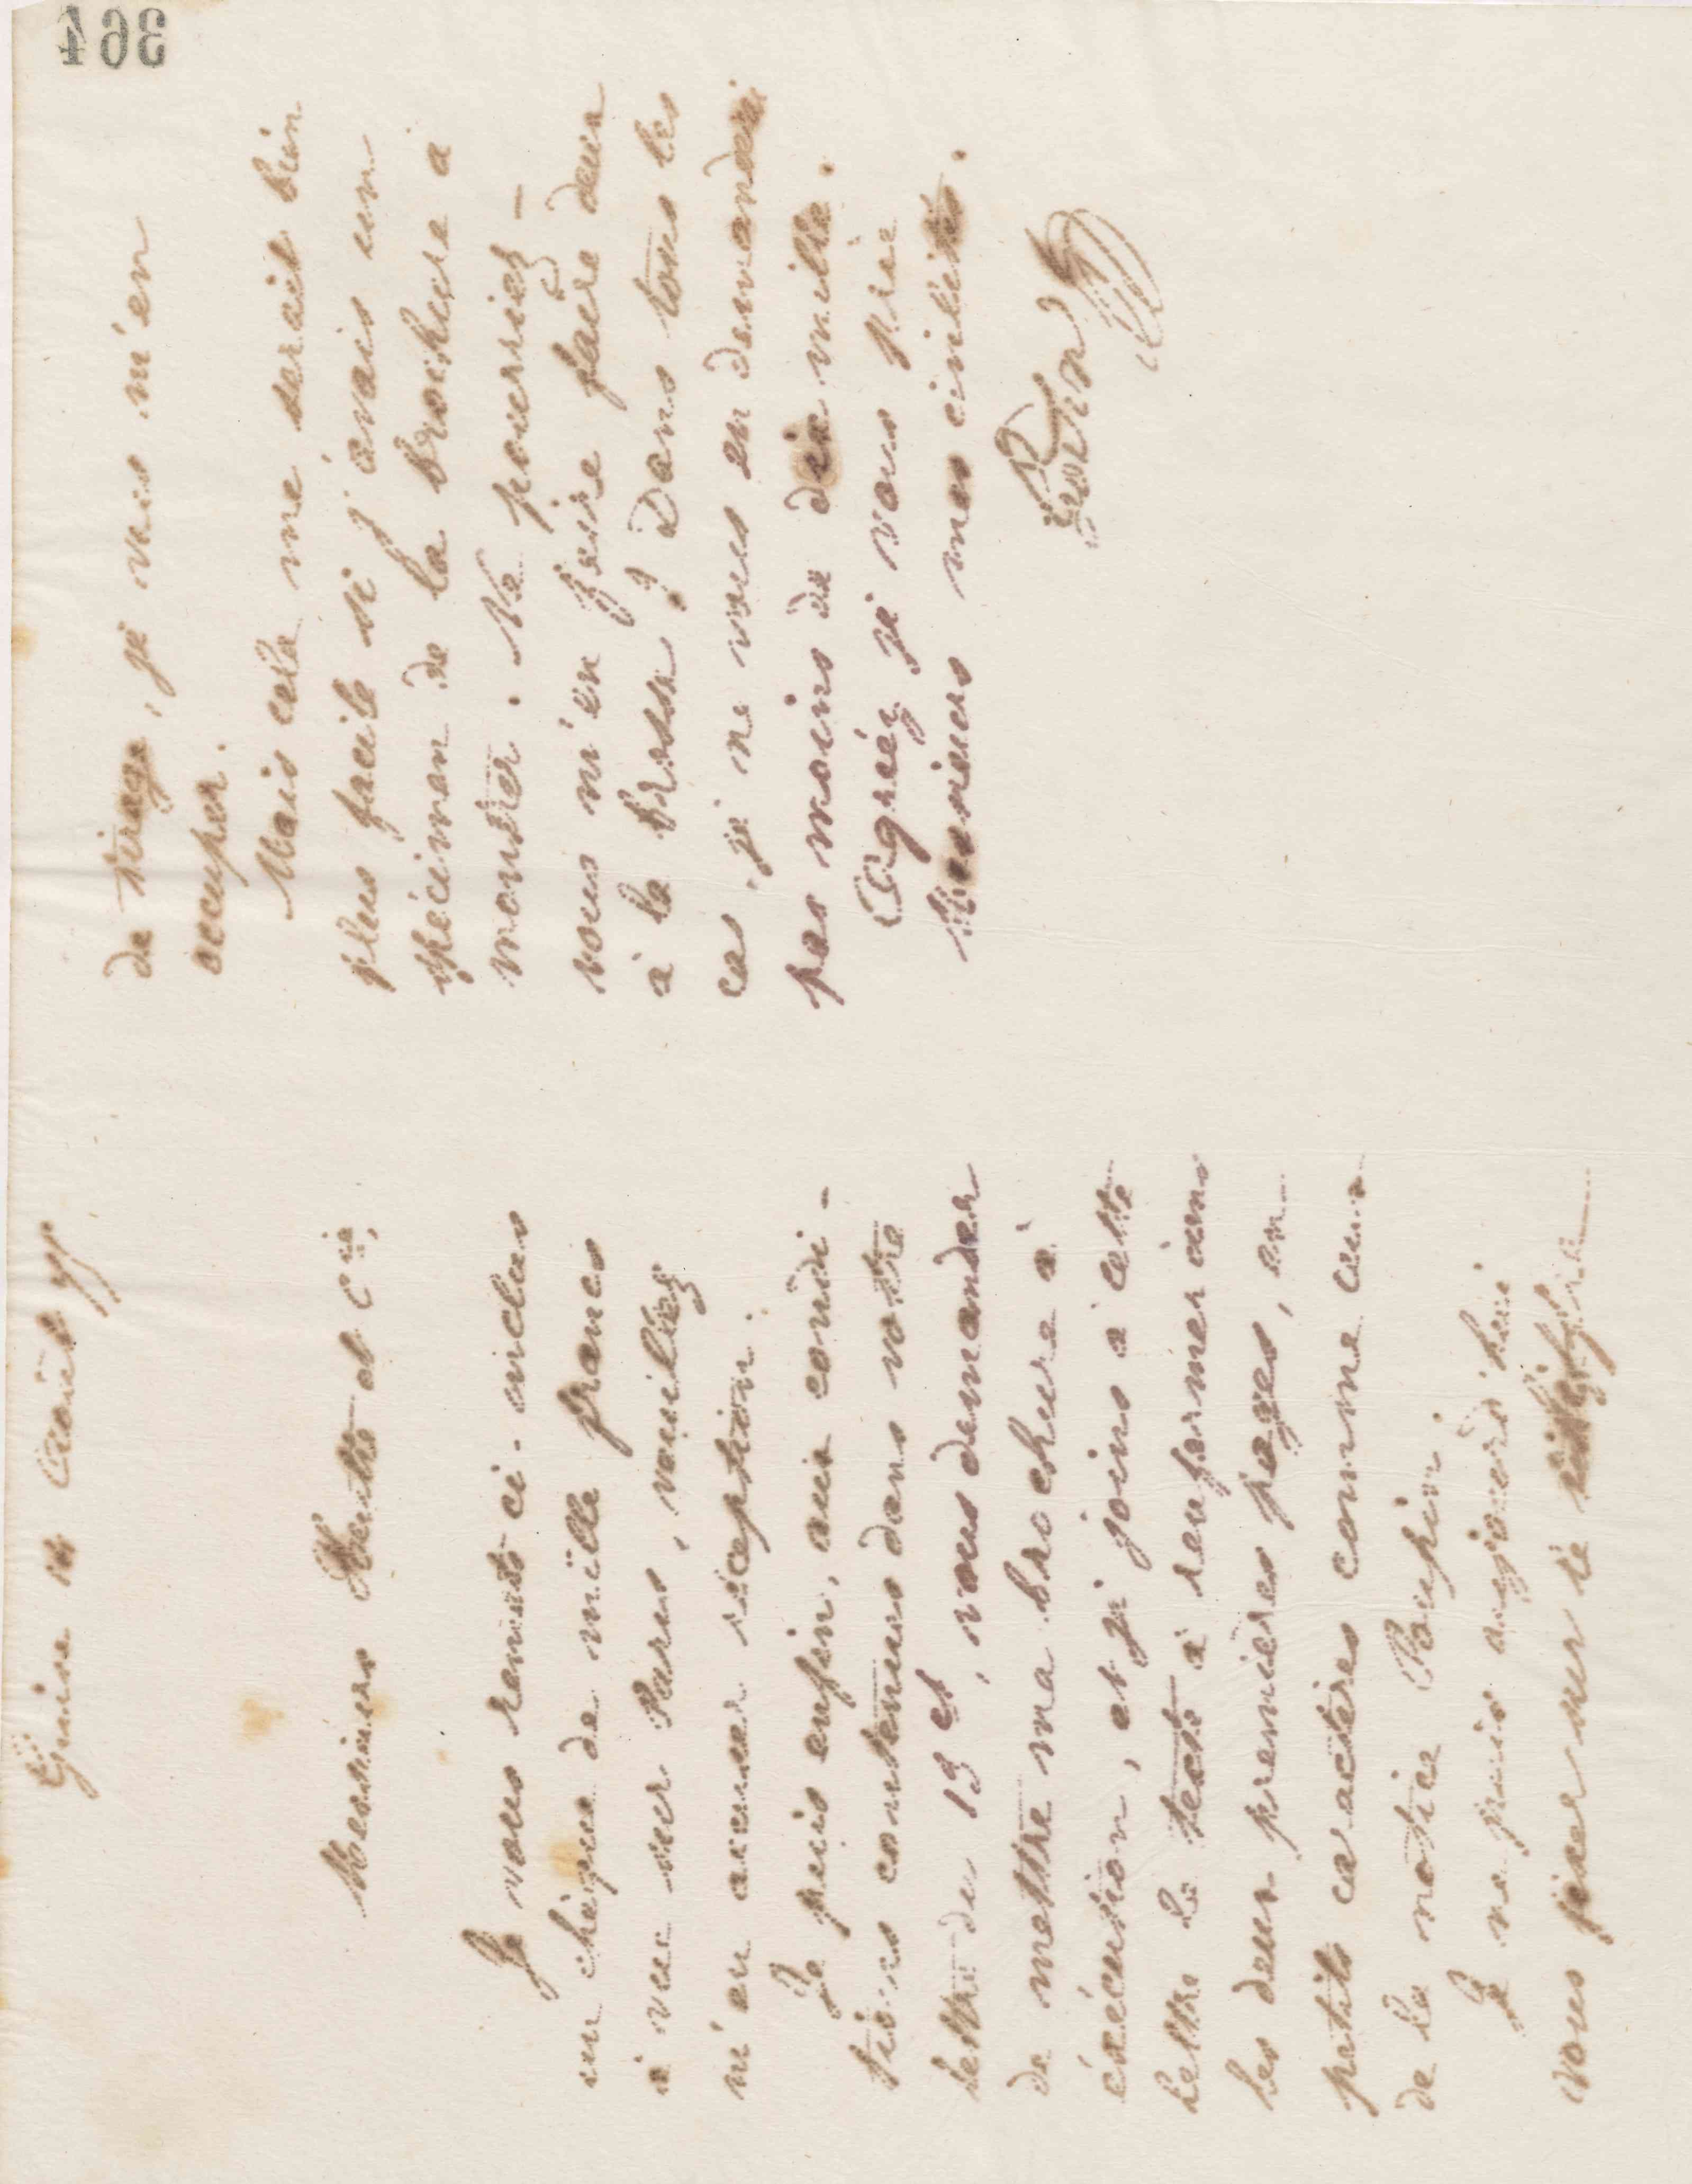 364
Guise 16 Août 77
Messieurs et Cie,
Je vous remets ci-inclus
un chèque de mille francs
à vue sur Paris, veuillez
m'en accuser réception.
Je puis enfin, aux condi-
tions contenues dans votre
lettre du 13 ct, vous demander
de mettre ma brochure à
éxécution, et je joins à cette
lettre le texte à renfermer dans
les deux premières pages, en
petits caractères comme ceux
de la notice Poupin.
Je ne puis aujourd'hui
vous fixer sur le chiffre
de tirage, je vais m'en
occuper.
Mais cela me serait bien
plus facile si j'avais un
spécimen de la brochure à
montrer. Ne pourriez-
vous m'en faire faire deux
à la brosse ? Dans tous les
cas, je ne vous en demanderai
pas moins de dix mille.
Agréez je vous prie
Messieurs mes civilités.
Godin